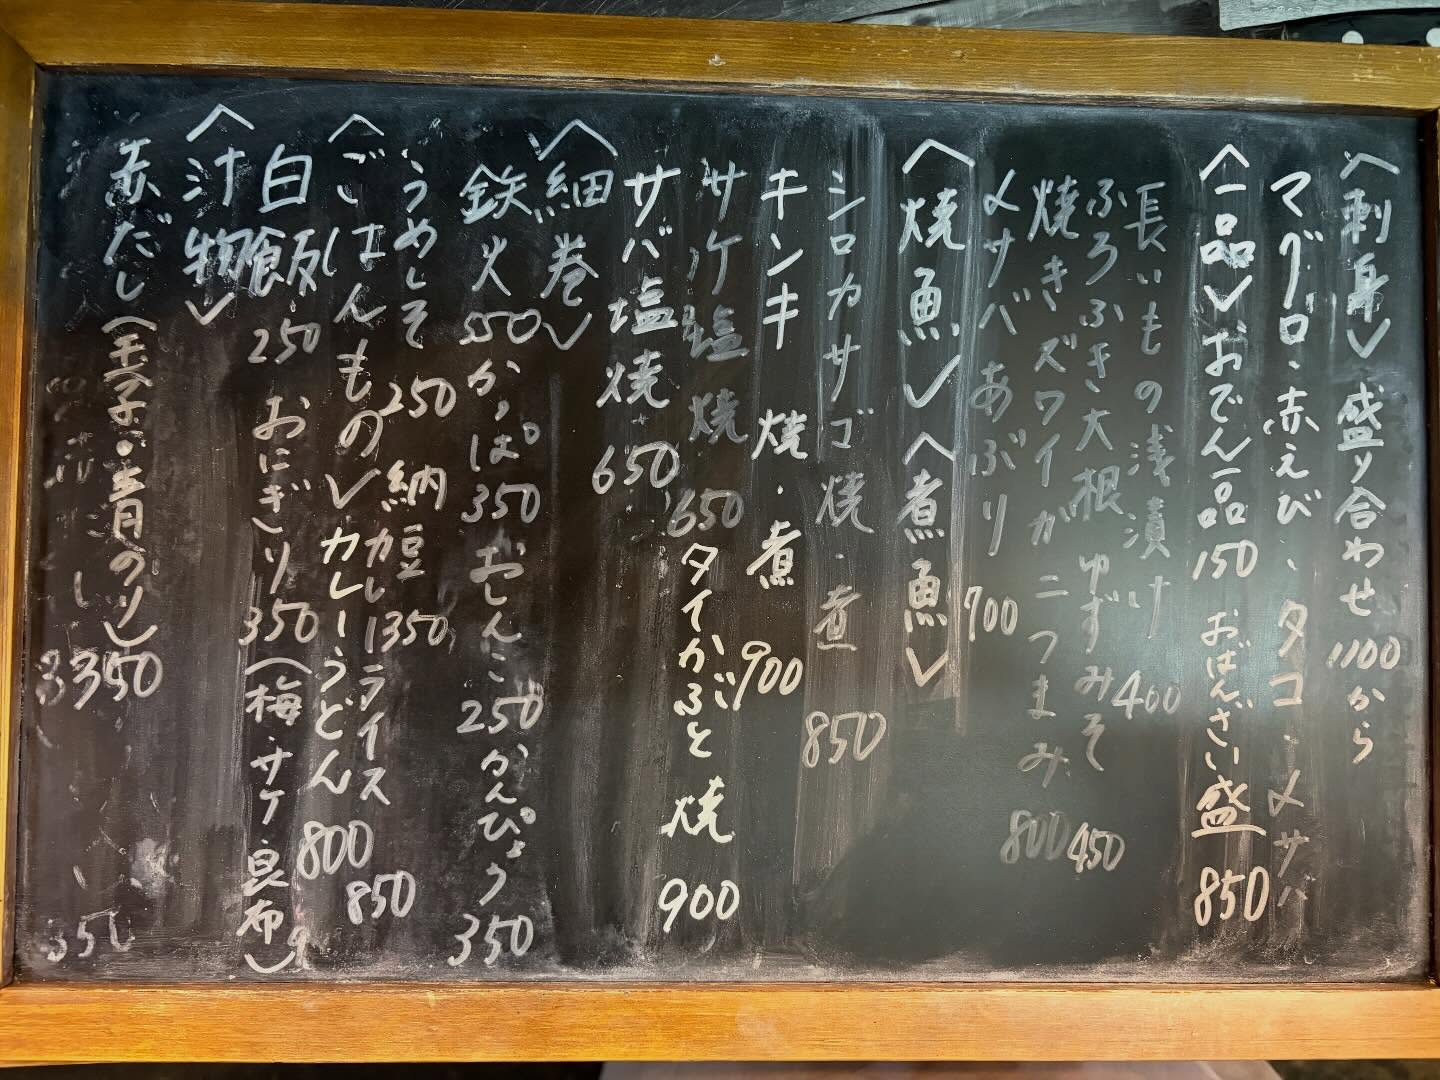 〈刺身〉盛り合わせ 1100から
マグロ・赤えび・タコ・〆サバ
〈一品〉おでん一品 150 おばんざい盛 850
長いもの浅漬け 400
ふろふき大根ゆずみそ 450
焼きズワイガニつまみ 800
〆サバあぶり 700
〈焼魚〉〈煮魚〉
シロカサゴ 焼・煮 850
キンキ 焼・煮 900
サケ塩焼 650 タイかぶと 焼 900
サバ塩焼 650
〈細巻〉
鉄火 550 かっぱ 350 おしんこ 250 かんぴょう 350
うめしそ 250 納豆 350
〈ごはんもの〉カレーライス 850
カレーうどん 800
白飯 250 おにぎり 350 (梅・サケ・昆布)
〈汁物〉
赤だし(玉子・青のり) 350
350